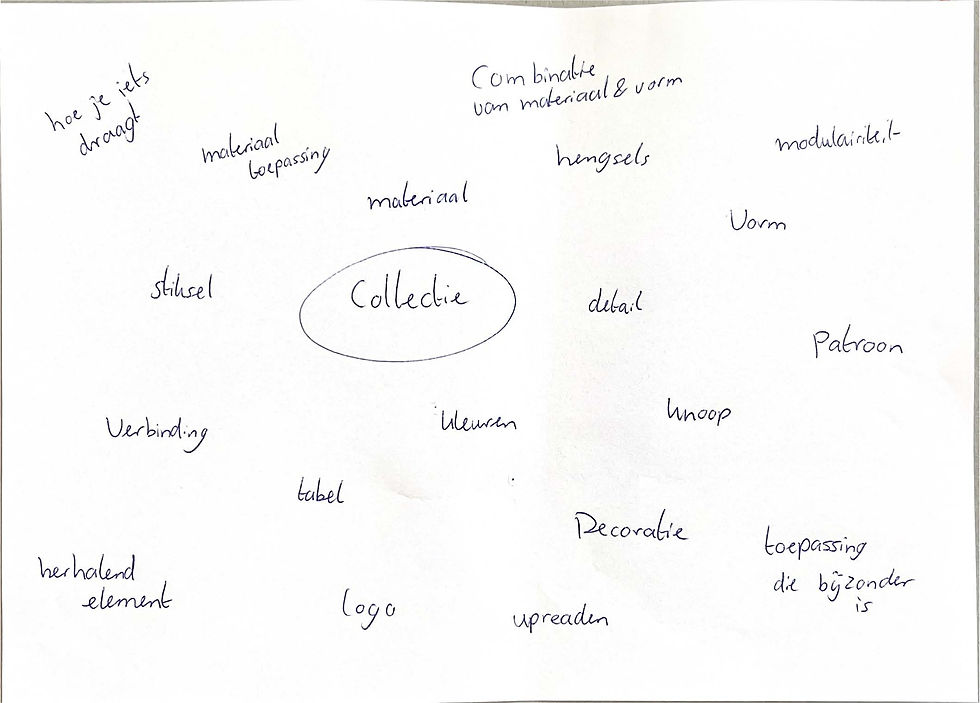 Combinatie
van materiaal & vorm
hoe je iets
draagt
materiaal
toepassing
hengsels
modulairiteit
materiaal
Vorm
stiksel
Collectie
detail
Patroon
Verbinding
kleuren
knoop
label
Decoratie
toepassing
die bijzonder
is
herhalend
element
logo
upreaden